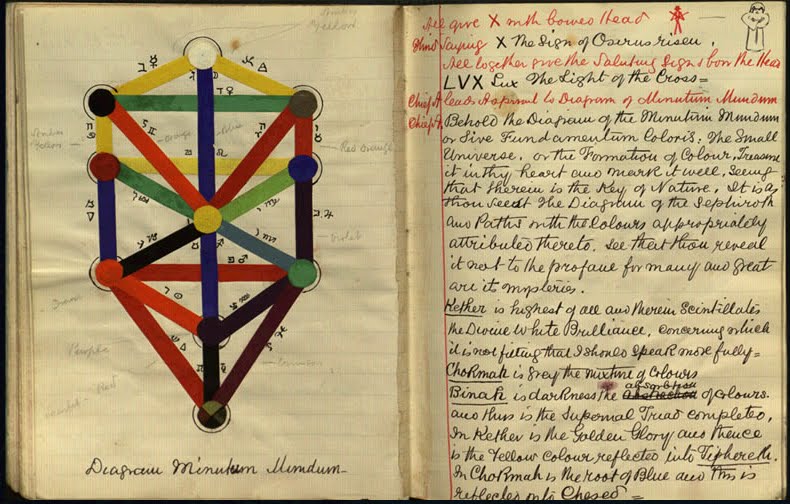 Yellow
Yellow
orange
Blue
Red orange
Violet
Purple
Red
Diagram Minutum Mundum
All give X with bowed Head
Third Saying X The Sign of Osirus risen.
All together give the Saluting Sign & bow the Head
LVX Lux The Light of the Cross =
Chief A. leads Aspirant to Diagram of Minutum Mundum
Chief A. Behold the Diagram of the Minutum Mundum
or Sive Fundamentum Coloris: The Small
Universe, or the Formation of Colour. Treasure
it in thy heart and mark it well, seeing
that therein is the Key of Nature. It is as
thou seest the Diagram of the Sephiroth
and Paths with the Colours appropriately
attributed thereto. See that thou reveal
it not to the profane for many and great
are its mysteries.
Kether is highest of all and therein Scintillates
the Divine White Brilliance, concerning which
it is not fitting that I should speak more fully =
Chokmah is grey the mixture of Colours
Binah is darkness the absorbtion of Colours.
and thus is the Supernal Triad completed,
In Kether is the Golden Glory and thence
is the Yellow Colour reflected into Tiphereth.
In Chokmah is the root of Blue and this is
reflected into Chesed =